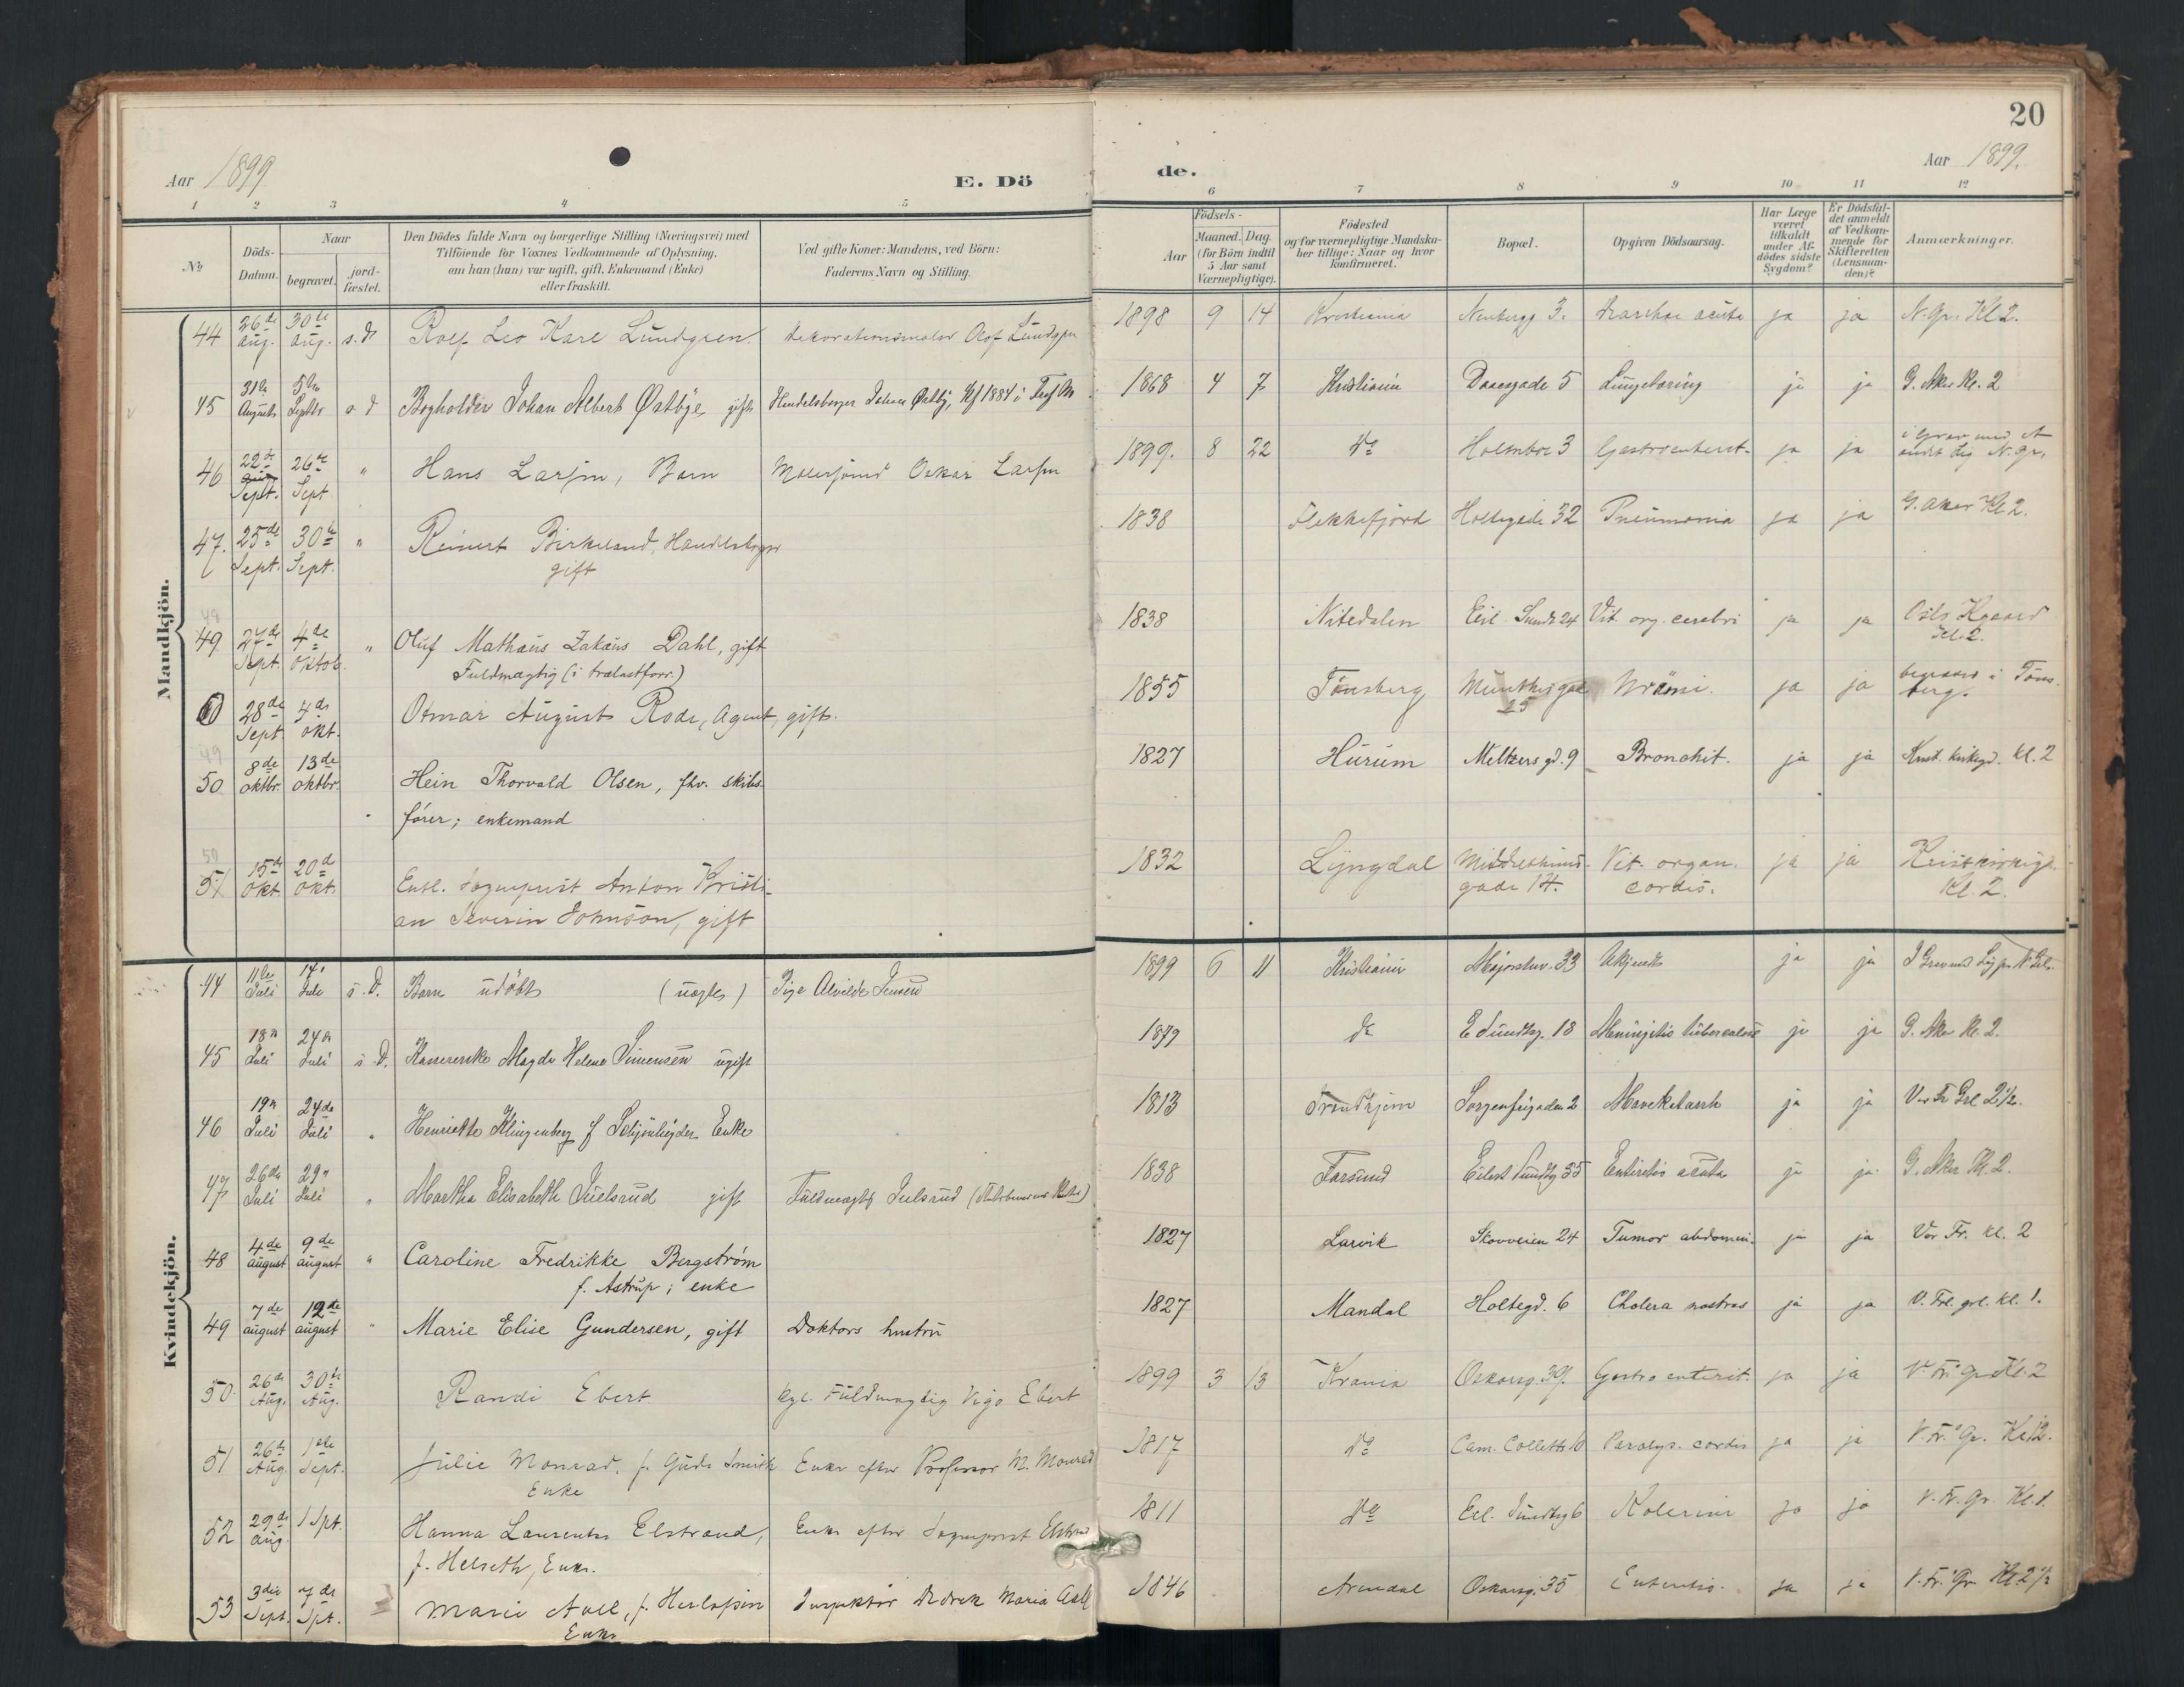 20
Aar 1899
E. Dö
de.
Aar 1899.
1 2 3 4 5 6 7 8 9 10 11 12
No
Döds-
Datum.
Naar
begravet.
jord-
fæstet.
Den Dödes fulde Navn og borgerlige Stilling (Næringsvei) med
Tilföiende for Voxnes Vedkommende af Oplysning,
om han (hun) var ugift, gift, Enkemand (Enke)
eller fraskilt.
Ved gifte Koner: Mandens, ved Börn:
Faderens Navn og Stilling.
Födsels-
Aar
Maaned.
Dag.
(for Börn indtil
5 Aar samt
Værnepligtige).
Födested
og for værnepligtige Mandska-
ber tillige: Naar og hvor
konfirmeret.
Bopæl.
Opgiven Dödsaarsag.
Har Læge
været
tilkaldt
under Af-
dödes sidste
Sygdom?
Er Dödsfal-
det anmeldt
af Vedkom-
mende for
Skifteretten
(Lensman-
den)?
Anmærkninger.
Mandkjön.
44 26de Aug. 30te Aug. s. d. Rolf Leo Karl Lundgren. Dekorationsmaler Olof Lundgren 1898 9 14 Kristiania 3. ja ja N. Gr. Kl 2.
45 31te August 5te Septbr s d Bogholder Johan Albert Østbye gift Handelsborger Johan Østby, 1868 4 7 Kristiania Daasgade 5 Lungetæring ja ja G. Aker Kl. 2
46 22de Sept. 26de Sept " Hans Larsen, Barn Malersvend Oskar Larsen 1899. 8 22 do 3 Gastroenterit. ja ja i Grav med et
andet Lig N. Gr.
47. 25de Sept. 30te Sept. " Reinert Birkeland, Handelsborger
gift 1838 Flekkefjord Holtegade 32 Pneumonia ja ja G. Aker Kl 2.
48
49 27de Sept. 4de Oktob. " Oluf Mathæus Zakæus Dahl, gift
Fuldmægtig (i trælastforr.) 1838 Nitedalen Eil. Sunds 24 Vit. org. cerebri ja ja Oslo Kl. 2.
28de Sept. 4de Okt. Otmar August Rode, Agent, gift. 1855 Tönsberg Munthesgade
25 Uræmi. ja ja begravet i Töns-
berg.
49
50 8de oktbr. 13de oktbr. Hein Thorvald Olsen, fhv. skibs-
förer; enkemand 1827 Hurum Meltzers gd. 9 Bronchit. ja ja Krist. kirkegd. kl. 2
50
51 15de Okt 20de Okt. Entl. Sogneprest Anton Kristi-
an Severin Johnson, gift 1832 Lyngdal Middelthuns-
gade 14. Vit. organ.
cordis. ja ja Kl. 2.
Kvindekjön.
44 11te Juli Juli s. D. Barn udöbt (uægte) Pige Alvilde Jensen 1899 6 11 Kristiania Majorstuv. 33 ja ja
45 18de Juli 24de Juli s. D. Kassererske Magda Helene Simensen ugift 1879 do E Sundtsg. 18 Meningitis tuberculosa ja ja G. Aker Kl. 2.
46 19de Juli 24de Juli " Henriette Klingenberg f Enke 1813 Trondhjem Sorgenfrigaden 2 Mavekatarrh ja ja Vor Fr Grl 2 1/2.
47 26de Juli 29de Juli " Martha Elisabeth Juelsrud gift Fuldmægtig Juelsrud 1838 Farsund Eilert Sundtsg 35 Enteritis acuta ja ja G. Aker Kl. 2.
48 4de august 9de august " Caroline Fredrikke Bergström
f. Astrup; enke 1827 Larvik Skovveien 24 Tumor abdomin. ja ja Vor Fr. kl. 2
49 7de august 12te august " Marie Elise Gundersen, gift Doktors hustru 1827 Mandal Holtegd. 6 Cholera nostras ja ja V. Fr. grl. kl. 1.
50. 26de Aug. 30te Aug. Randi Ebert kgl. Fuldmægtig Vigo Ebert 1899 3 13 Krania Oskarsg. 39. Gastro enterit. ja ja V. Fr. Gr. Kl. 2
51 26de Aug. 1ste Sept. Julie Monrad. f. Gude Smith
Enke Enke efter Professor M. Monrad 1817 do Cam. Colletts 10 Paralys. cordis ja ja V. Fr. Gr. Kl 2.
52 29de Aug. 1 Spt. Hanna Laurentze Elstrand,
f. Helseth, Enke. Enke efter Sogneprest Elstrand 1811 do Eil. Sundtsg 6 Kolerine ja ja V. Fr. Gr. Kl. 1.
53 3die Sept. 7de Spt. Marie Aall, f. Herlofsen
Enke Inspektör Didrik Maria Aall 1846 Arendal Oskarsg. 35 Enteritis. ja ja V. Fr. Gr. Kl. 2 1/2